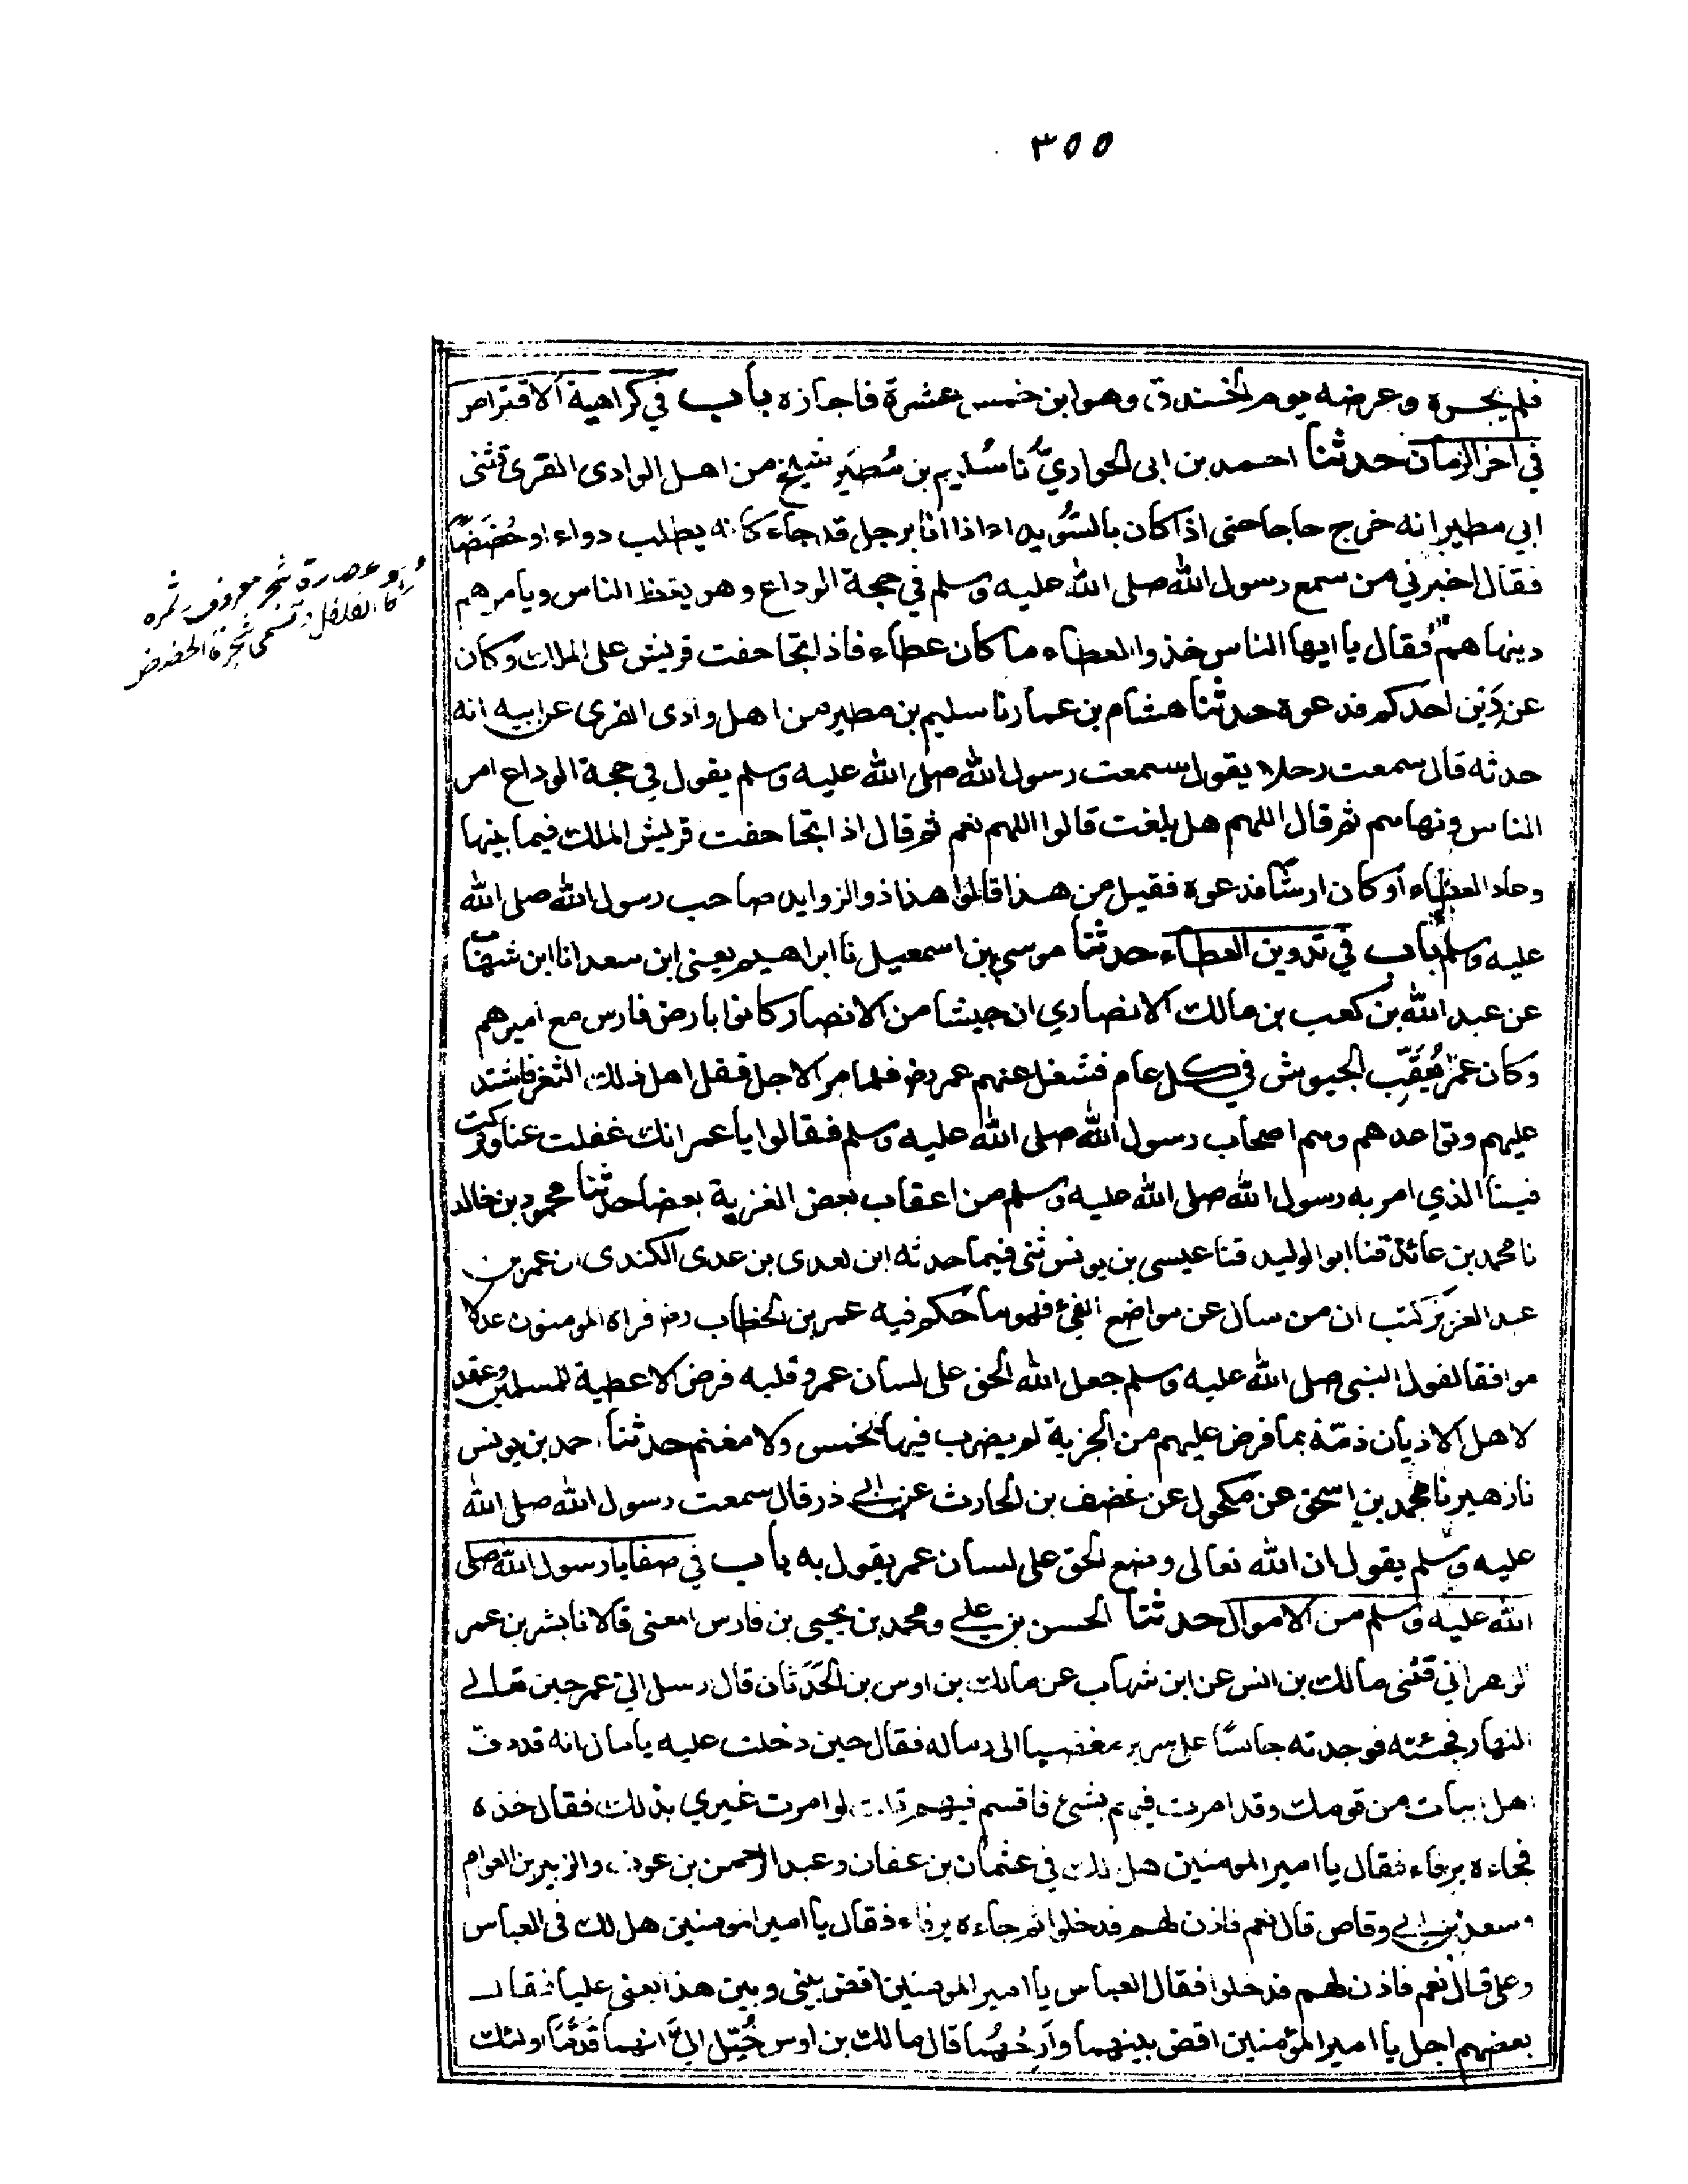 ٣٥٥
فلم يجزه وعرضه يوم الخندق وهو ابن خمس عشرة فاجازه باب في كراهية الاقتراض
في اخر الزمان حدثنا احمد بن ابى الحواريّ نا سُليم بن مُطَير شيخ من اهل الوادى القرى قثنى
ابي مطير انه خرج حاجا حتى اذا كان بالسُّويداء اذا انا برجل قد جاء كانه يطلب دواء او حُضَضًا
فقال اخبرني من سمع رسول الله صلى الله عليه وسلم في حجة الوداع وهو يعظ الناس ويامرهم
وينهاهم فقال يا ايها الناس خذوا العطاء ما كان عطاء فاذا تجاحفت قريش على الملك وكان
عن دَين احدكم فدعوه حدثنا هشام بن عمار نا سليم بن مطير من اهل وادى القرى عن ابيه انه
حدثه قال سمعت رجلا يقول سمعت رسول الله صلى الله عليه وسلم يقول في حجة الوداع امر
الناس ونهاهم ثم قال اللهم هل بلغت قالوا اللهم نعم ثم قال اذا تجاحفت قريش الملك فيما بينها
وعاد العطاء او كان ارشًا فدعوه فقيل من هذا قالوا هذا ذو الزوايد صاحب رسول الله صلى الله
عليه وسلم باب في تدوين العطاء حدثنا موسى بن اسمعيل نا ابراهيم يعنى ابن سعد انا ابن شهاب
عن عبد الله بن كعب بن مالك الانصاري ان جيشا من الانصار كانوا بارض فارس مع اميرهم
وكان عمر يُعَقِّب الجيوش في كل عام فشغل عنهم عمر رض فلما مر الاجل قفل اهل ذلك الثغر فاشتد
عليهم وتواعدهم وهم اصحاب رسول الله صلى الله عليه وسلم فقالوا يا عمر انك غفلت عنا وتركت
فينا الذي امر به رسول الله صلى الله عليه وسلم من اعقاب بعض الغزية بعضا حدثنا محمود بن خالد
نا محمد بن عائذ قثنا ابو الوليد قثنا عيسى بن يونس ثنى فيما حدثه ابن لعدى بن عدى الكندى ان عمر بن
عبد العزيز كتب ان من سال عن مواضع الفئ فهو ما حكم فيه عمر بن الخطاب رض فراه المومنون عدلا
موافقا لقول النبى صلى الله عليه وسلم جعل الله الحق على لسان عمر وقلبه فرض الاعطية للمسلمين وعقد
لاهل الاديان ذمّة بما فرض عليهم من الجزية لم يضرب فيها بخمس ولا مغنم حدثنا احمد بن يونس
نا زهير نا محمد بن اسحق عن مكحول عن غضيف بن الحارث عن ابي ذر قال سمعت رسول الله صلى الله
عليه وسلم يقول ان الله تعالى وضع الحق على لسان عمر يقول به باب في صفايا رسول الله صلى
الله عليه وسلم من الاموال حدثنا الحسن بن علي ومحمد بن يحيى بن فارس المعنى قالا نا بشر بن عمر
الزهراني قثنى مالك بن انس عن ابن شهاب عن مالك بن اوس بن الحَدَثان قال ارسل الي عمر حين تعالى
النهار فجئته فوجدته جالسًا على سرير مفضيا الى رماله فقال حين دخلت عليه يا مال انه قد دف
اهل ابيات من قومك وقد امرت فيهم بشئ فاقسم فيهم قلت لو امرت غيري بذلك فقال خذه
فجاءه يرفاء فقال يا امير المومنين هل لك في عثمان بن عفان وعبد الرحمن بن عوف والزبير بن العوام
وسعد بن ابي وقاص قال نعم فاذن لهم فدخلوا ثم جاءه يرفاء فقال يا امير المومنين هل لك فى العباس
وعلى قال نعم فاذن لهم فدخلوا فقال العباس يا امير المومنين اقض بينى وبين هذا يعنى عليا فقال
بعضهم اجل يا امير المؤمنين اقض بينهما وارحهُما قال مالك بن اوس خُيّل اليّ انهما قَدَّمَا اولئك
هو عصارة شجر معروف ثمره
كالفلفل تسمى شجرة الحضض